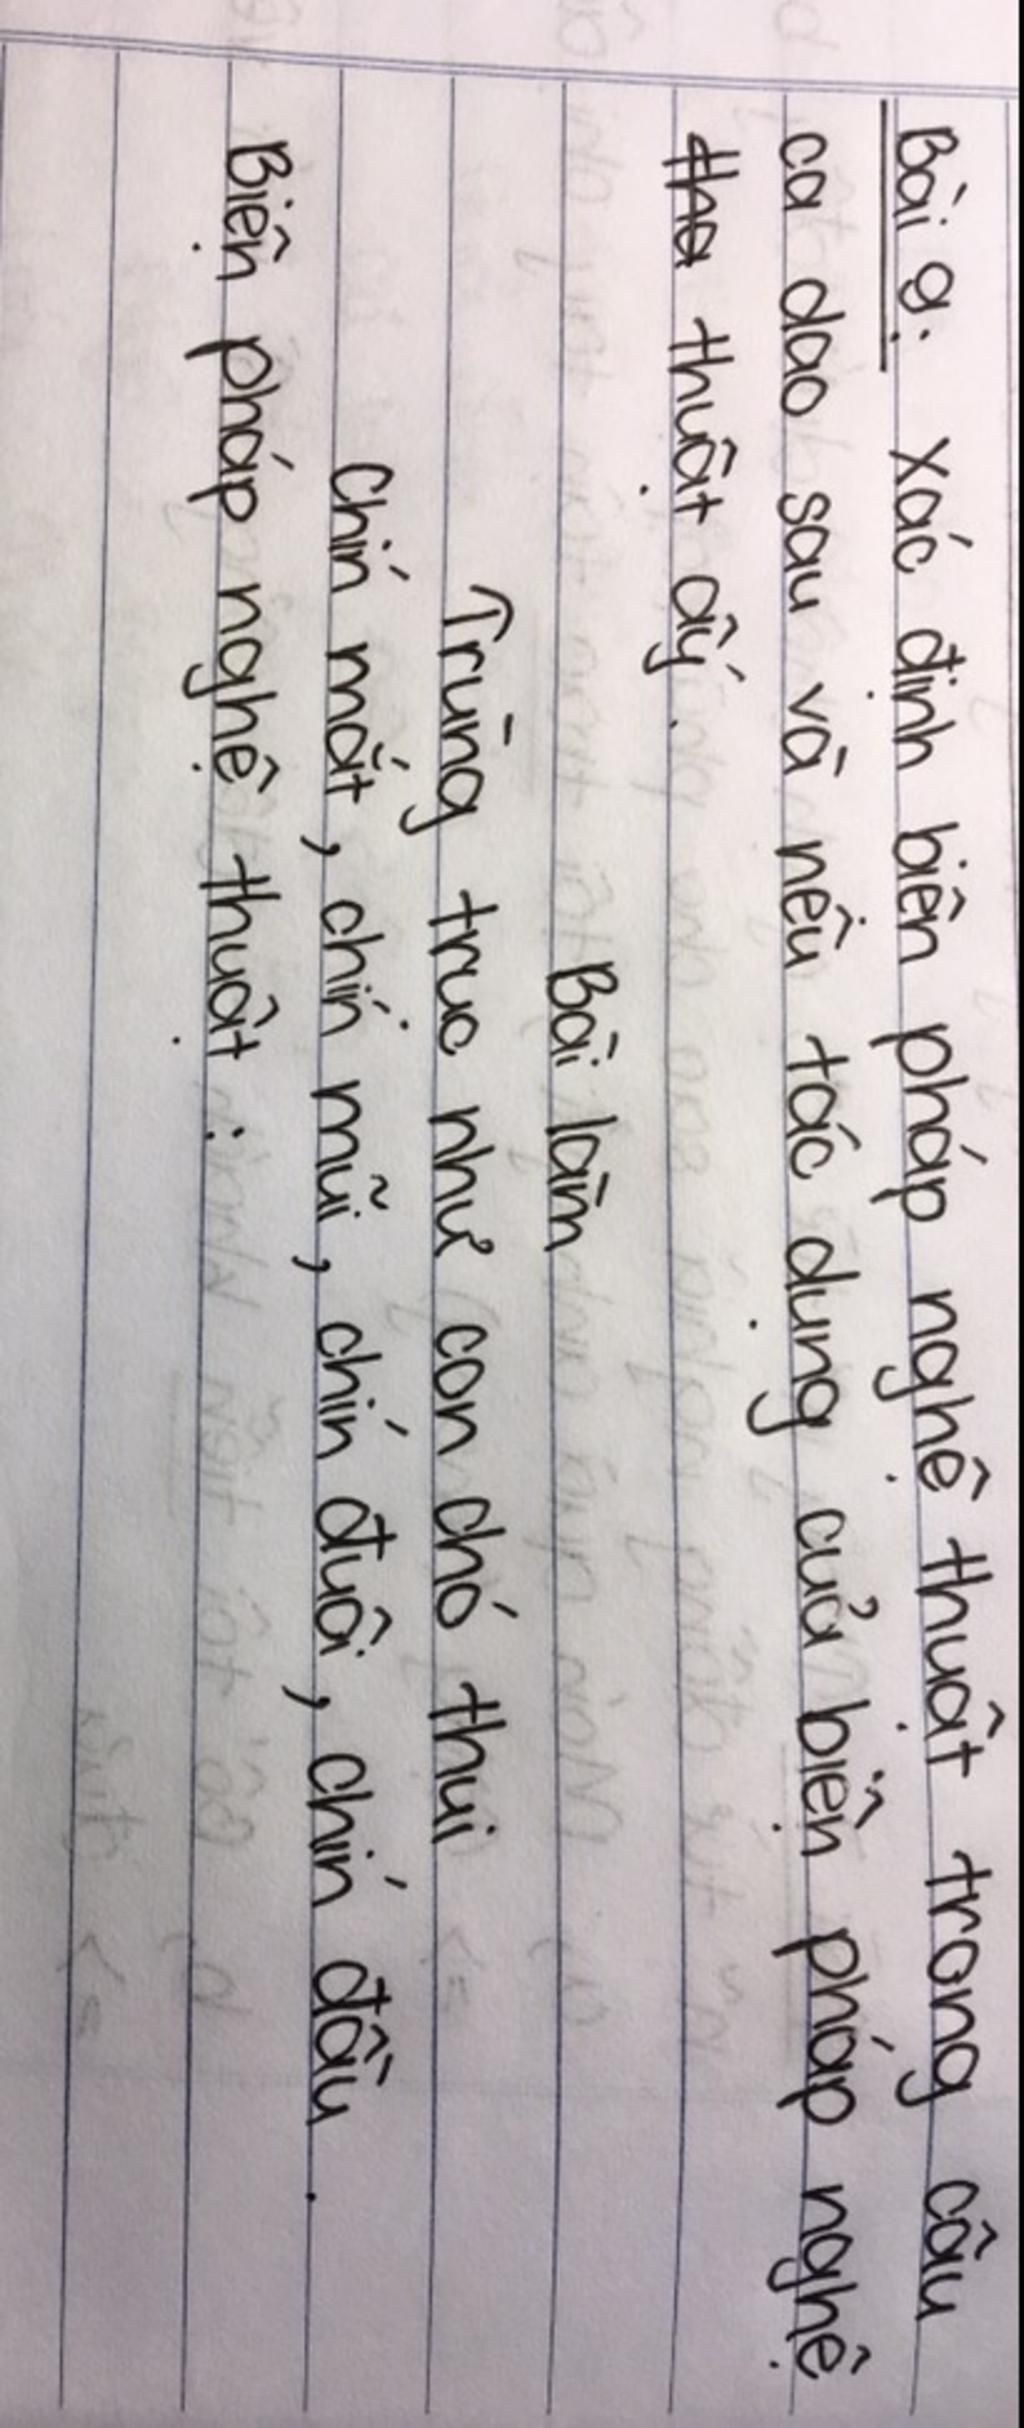 Bài 9. Xác định biện pháp nghệ thuật trong câu
ca dao sau và nêu tác dụng của biện pháp nghệ
thuật ấy.
Bài làm
Trùng trục như con chó thui
Chín mắt, chín mũi, chín đuôi, chín đầu.
Biện pháp nghệ thuật: